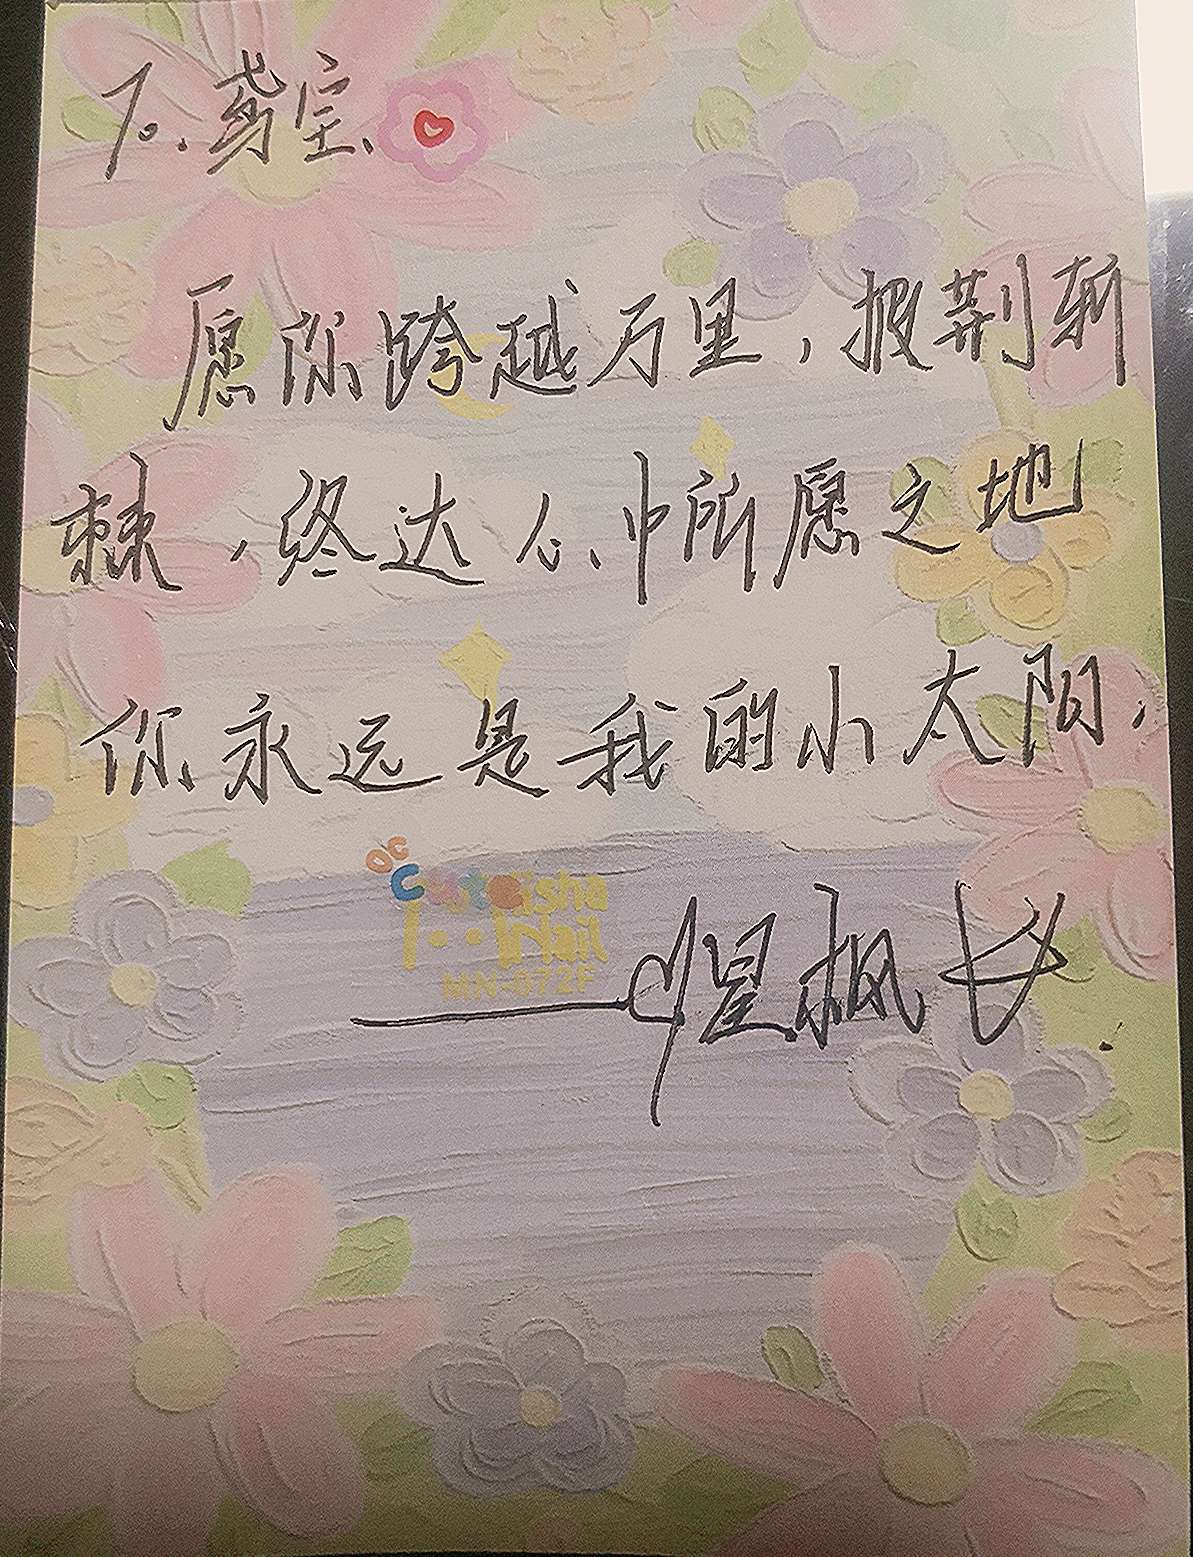 To.鸢宝、
愿你跨越万里，披荆斩
棘，终达心中所愿之地
你永远是我的小太阳.
cute
MN-072F
——惺枫